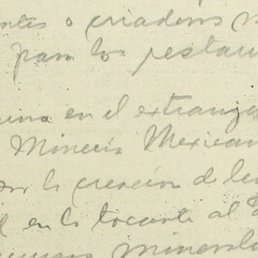 o criaderos
para los restau
en el extranje
Minería Mexican
por la creación de le
en lo tocante al
mineral